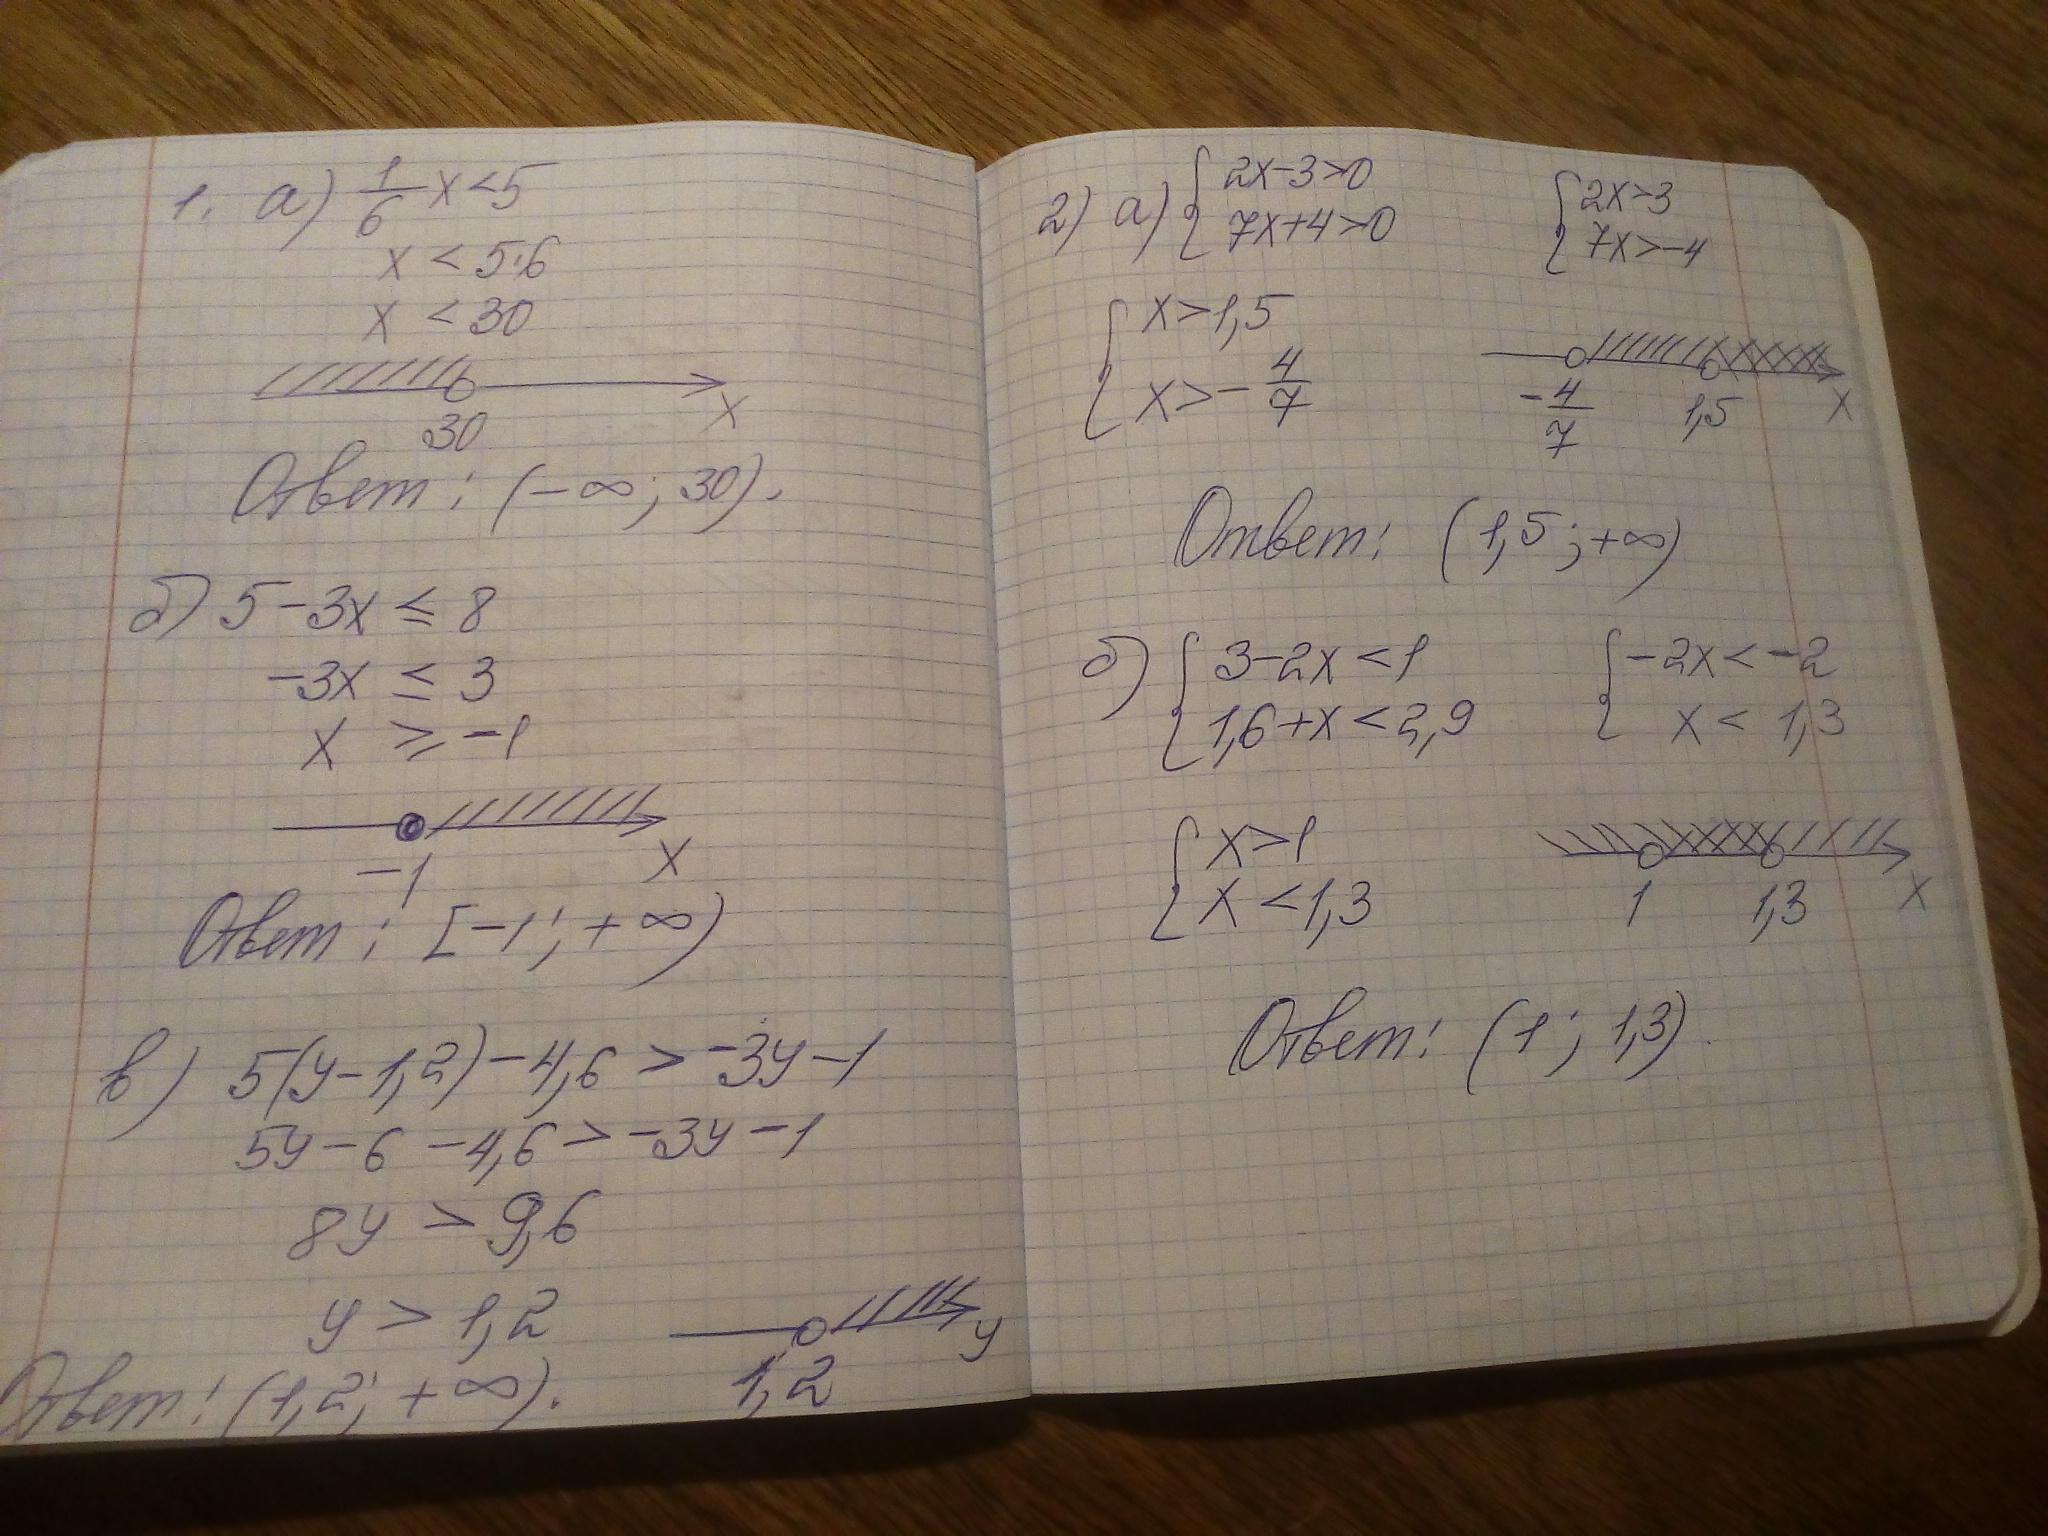 1. а) 1/6 x < 5
x < 5·6
x < 30
30 x
Ответ: (-∞; 30).
б) 5 - 3x ≤ 8
-3x ≤ 3
x ≥ -1
-1 x
Ответ: [-1; +∞)
в) 5(y - 1,2) - 4,6 > -3y - 1
5y - 6 - 4,6 > -3y - 1
8y > 9,6
y > 1,2
1,2 y
Ответ: (1,2; +∞).
2) а) { 2x - 3 > 0
7x + 4 > 0
{ 2x > 3
7x > -4
{ x > 1,5
x > - 4/7
- 4/7 1,5 x
Ответ: (1,5; +∞)
б) { 3 - 2x < 1
1,6 + x < 2,9
{ -2x < -2
x < 1,3
{ x > 1
x < 1,3
1 1,3 x
Ответ: (1; 1,3).